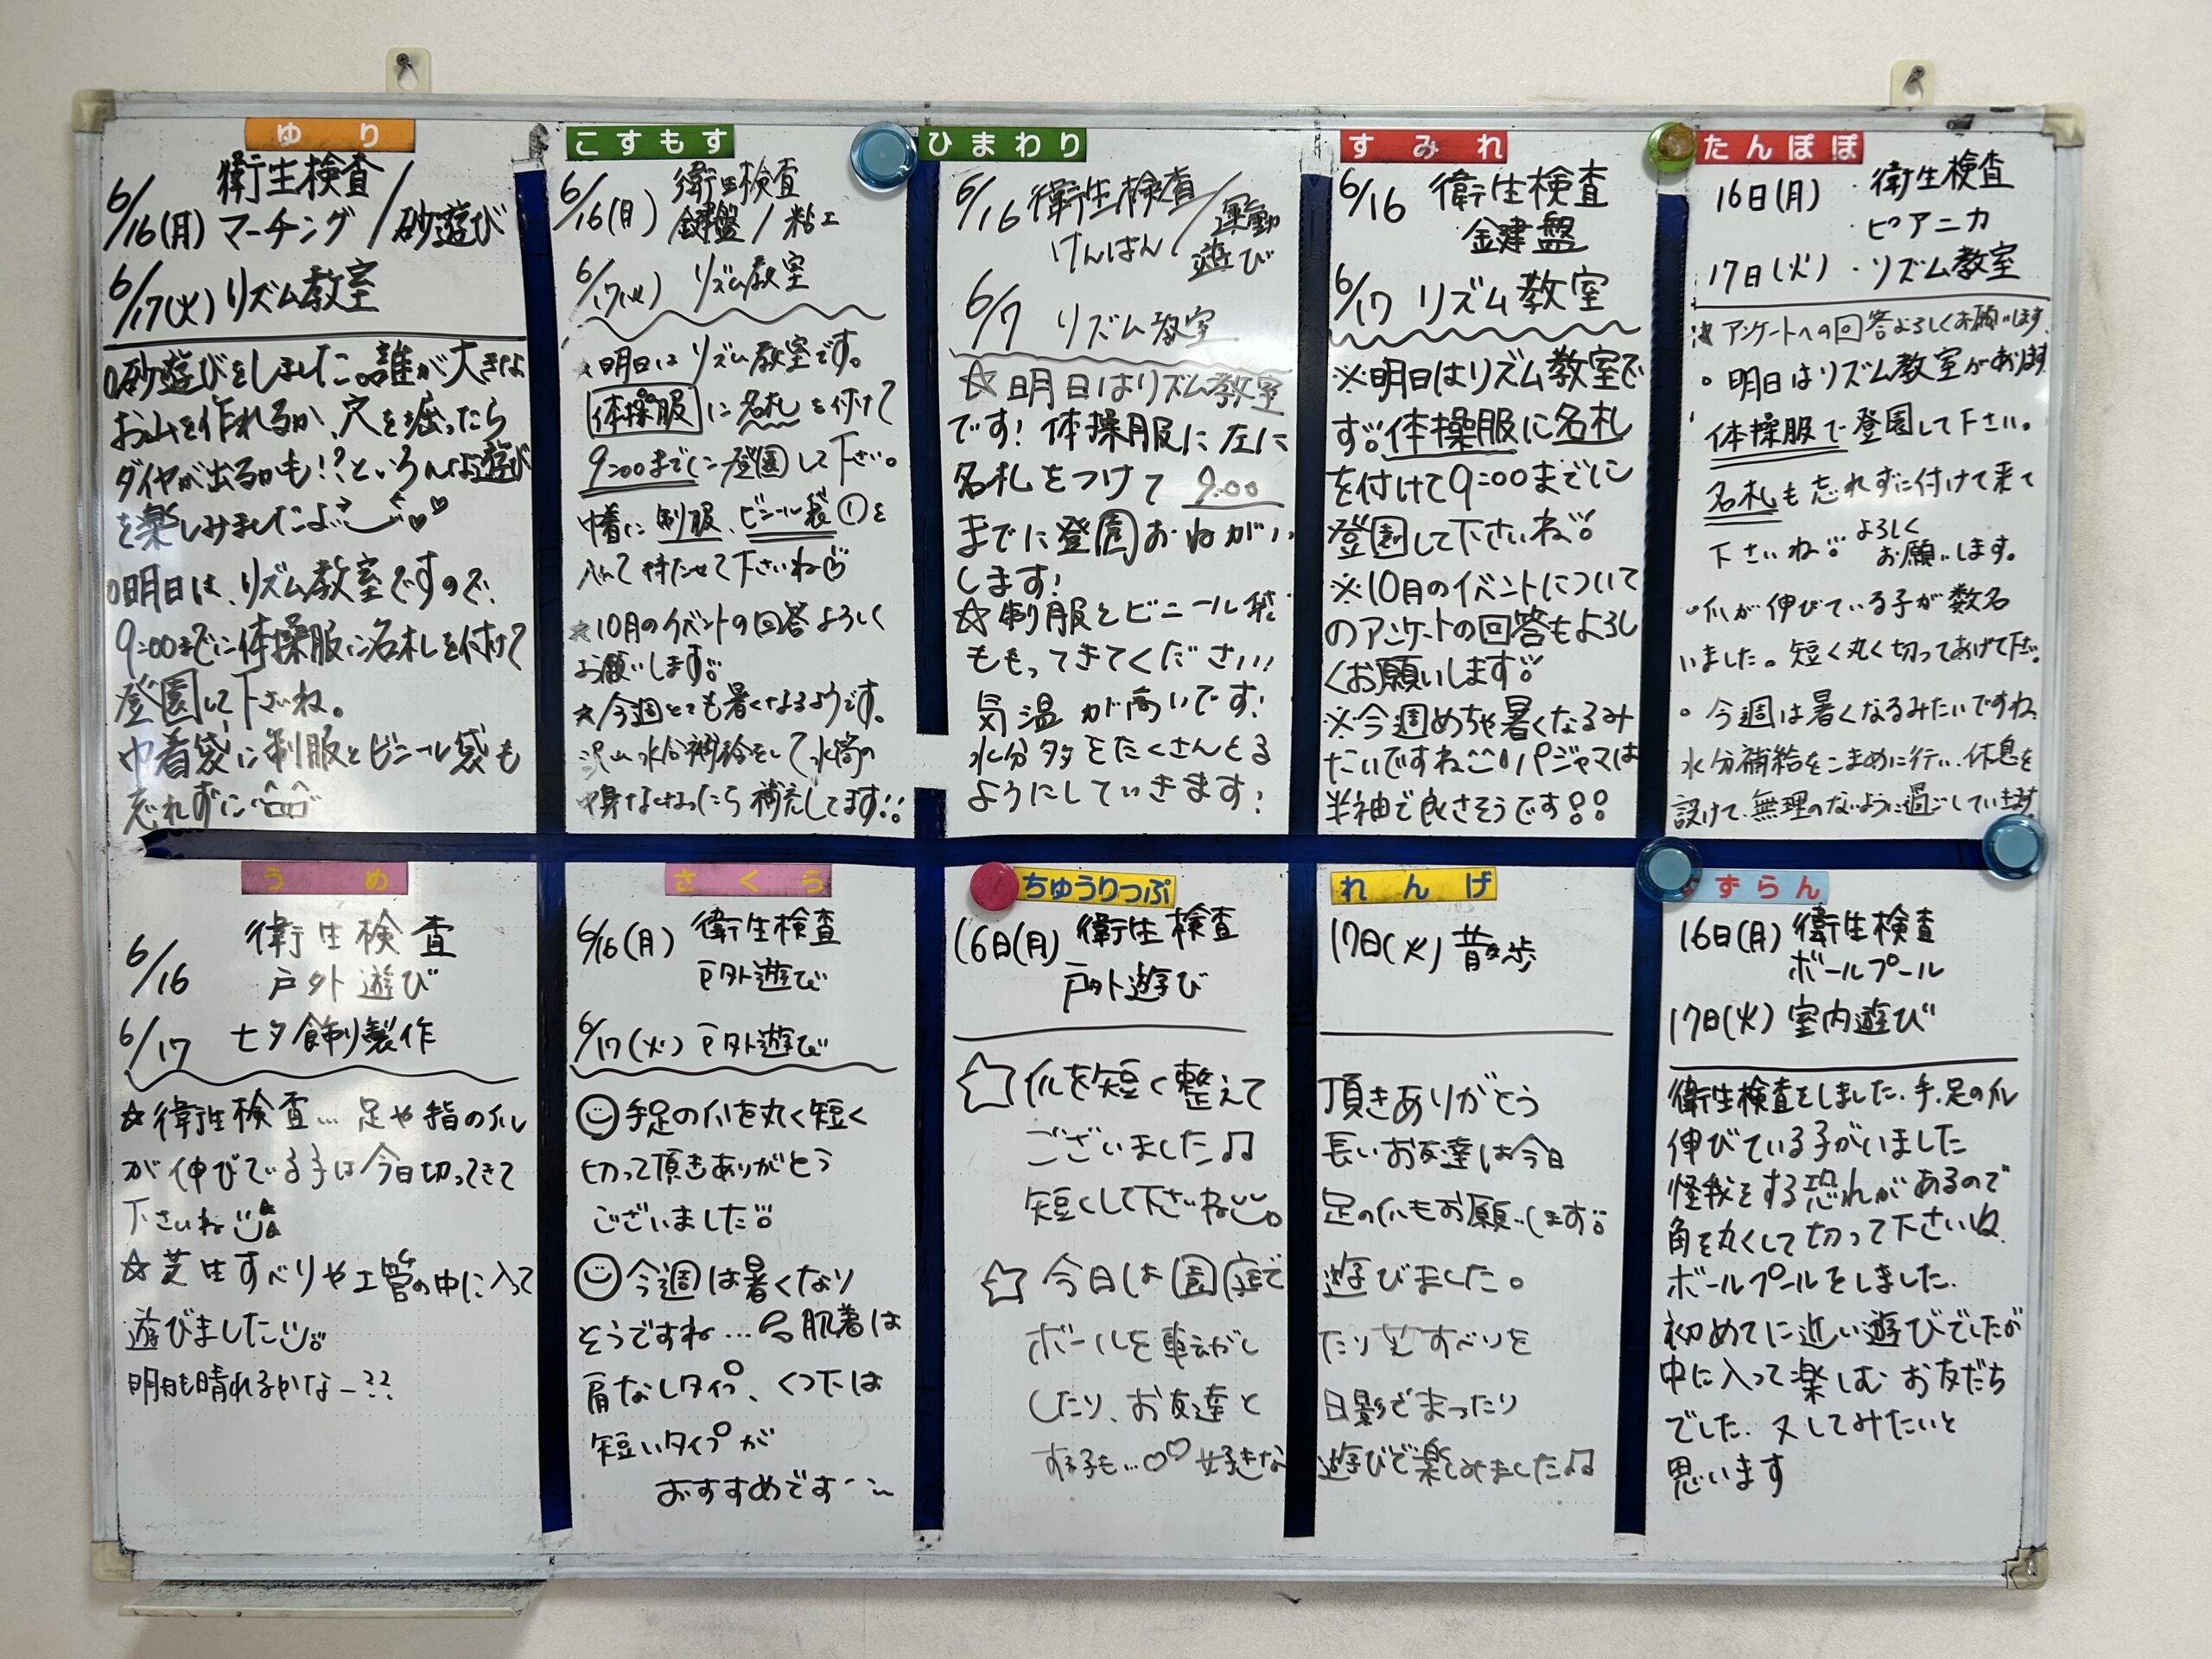 ゆり
衛生検査
6/16(月) マーチング/砂遊び
6/17(火) リズム教室
○砂遊びをしました。誰が大きな
お山を作れるか、穴を掘ったら
ダイヤが出るかも!?といろんな遊び
を楽しみましたよ
○明日は、リズム教室ですので、
9:00までに体操服に名札を付けて
登園して下さいね。
巾着袋に制服とビニール袋も
忘れずに
こすもす
6/16(月) 衛生検査
鍵盤/粘土
6/17(火) リズム教室
★明日はリズム教室です。
体操服に名札を付けて
9:00までに登園して下さい。
巾着に制服、ビニール袋①を
入れて持たせて下さいね
★10月のイベントの回答よろしく
お願いします。
★今週とても暑くなるようです。
沢山水分補給をして水筒の
中身なくなったら補充してます!!
ひまわり
6/16 衛生検査/運動
けんばん 遊び
6/7 リズム教室
☆明日はリズム教室
です! 体操服に左に
名札をつけて 9:00
までに登園おねがい
します!
☆制服とビニール袋
ももってきてください!!
気温が高いです!
水分多をたくさんとる
ようにしていきます!
すみれ
6/16 衛生検査
鍵盤
6/17 リズム教室
※明日はリズム教室で
す。体操服に名札
を付けて9:00までに
登園して下さいね。
※10月のイベントについて
のアンケートの回答もよろし
くお願いします。
※今週めちゃ暑くなるみ
たいですね パジャマは
半袖で良さそうです
たんぽぽ
16日(月) ・衛生検査
・ピアニカ
17日(火) ・リズム教室
※アンケートへの回答よろしくお願いします。
○明日はリズム教室があります
体操服で登園して下さい。
名札も忘れずに付けて来て
下さいね。よろしく
お願いします。
○爪が伸びている子が数名
いました。短く丸く切ってあげて下さい。
○今週は暑くなるみたいですね
水分補給をこまめに行い、休息を
設けて、無理のないように過ごしています
うめ
6/16 衛生検査
戸外遊び
6/17 七夕飾り製作
☆衛生検査… 足や指の爪
が伸びでいる子は今日切ってきて
下さいね
☆芝生すべりや土管の中に入って
遊びました
明日も晴れるかなー??
さくら
6/16(月) 衛生検査
戸外遊び
6/17(火) 戸外遊び
手足の爪を丸く短く
切って頂きありがとう
ございました
今週は暑くなり
そうですね… 肌着は
肩なしタイプ、くつ下は
短いタイプが
おすすめです
ちゅうりっぷ
16日(月) 衛生検査
戸外遊び
れんげ
17日(火) 散歩
☆爪を短く整えて 頂きありがとう
ございました♫ 長いお友達は今日
短くして下さいね 足の爪もお願いします
☆今日は園庭で 遊びました。
ボールを転がし たり芝すべりを
したり、お友達と 日影でまったり
する子も…♡♡ 好きな 遊びで楽しみました♫
すずらん
16日(月) 衛生検査
ボールプール
17日(火) 室内遊び
衛生検査をしました.手.足の爪
伸びている子がいました
怪我をする恐れがあるので
角を丸くして切って下さいね.
ボールプールをしました.
初めてに近い遊びでしたが
中に入って楽しむお友だち
でした. 又してみたいと
思います